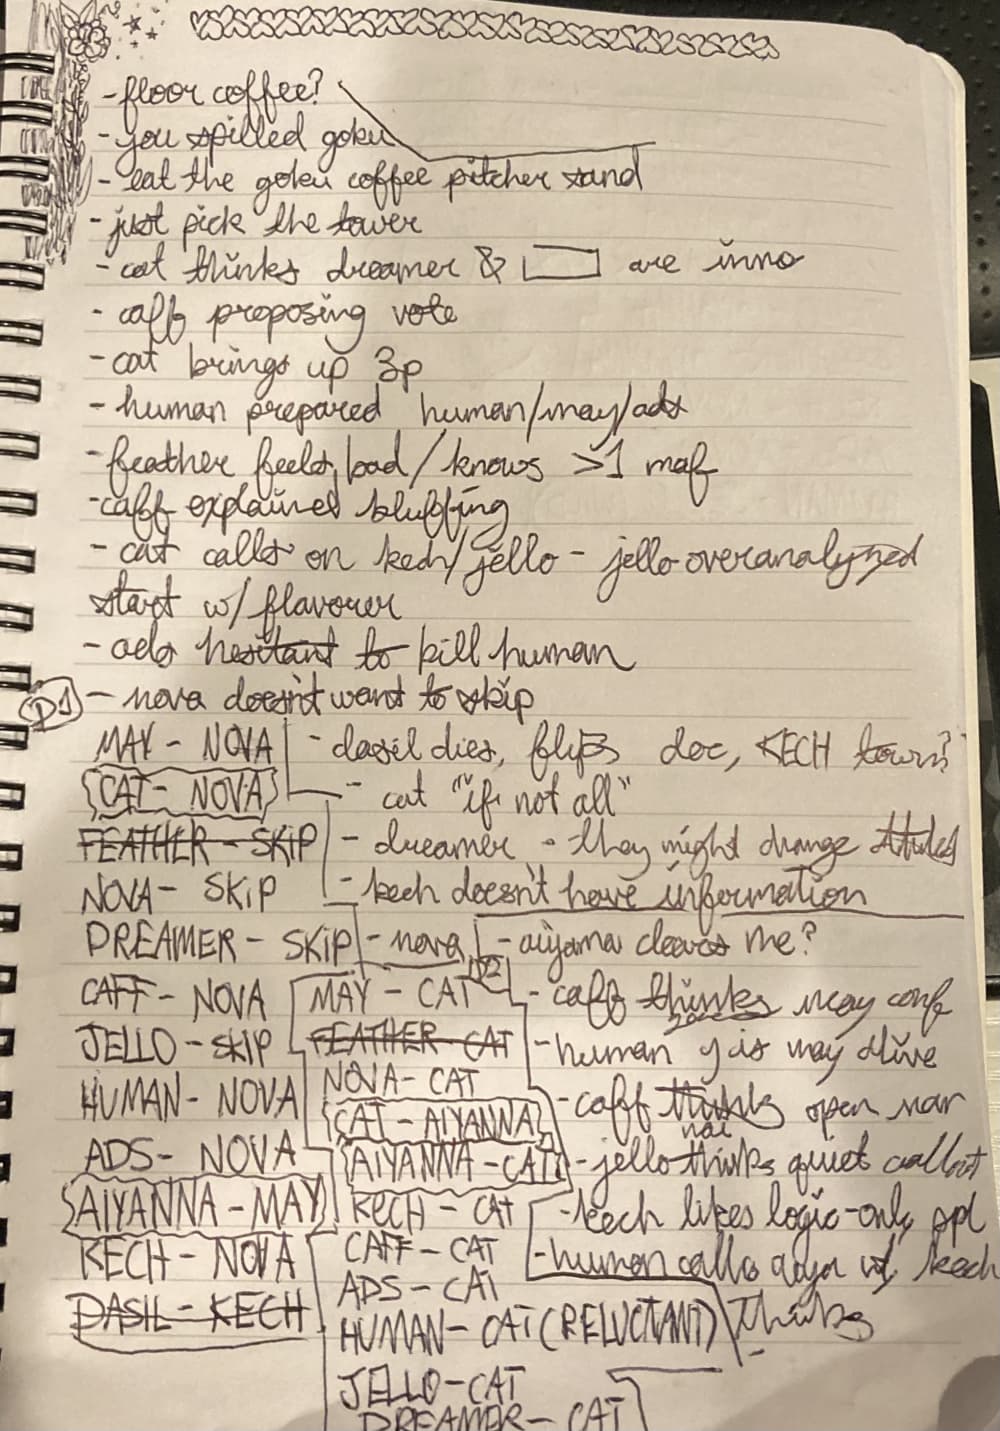 - floor coffee?
- you spilled goku
- eat the goku coffee pitcher sand
- just pick the tower
- cat thinks dreamer & are inno
- caff proposing vote
- cat brings up 3p
- human prepared human/may/ads
- feather feels bad/knows >1 maf
- caff explained bluffing
- cat calls on kech/jello - jello overanalyzed
start w/ flavorer
- ads hesitant to kill human
D1 - nova doesn't want to skip
MAY - NOVA
CAT - NOVA
FEATHER - SKIP
NOVA - SKIP
DREAMER - SKIP
CAFF - NOVA
JELLO - SKIP
HUMAN - NOVA
ADS - NOVA
AIYANNA - MAY
KECH - NOVA
DASIL - KECH
- dasil dies, flips doc, KECH town?
- cat "if not all"
- dreamer - they might change
- kech doesn't have information
- nova
D2
MAY - CAT
FEATHER - CAT
NOVA - CAT
CAT - AIYANNA
AIYANNA - CAT
KECH - CAT
CAFF - CAT
ADS - CAT
HUMAN - CAT (RELUCTANT)
JELLO - CAT
DREAMER - CAT
- aiyanna clears me?
- caff thinks may conf
- human y is may alive
- caff thinks open nar
- jello thinks quiet callout
- kech likes logic-only ppl
- human calls w/ kech
thinks
-